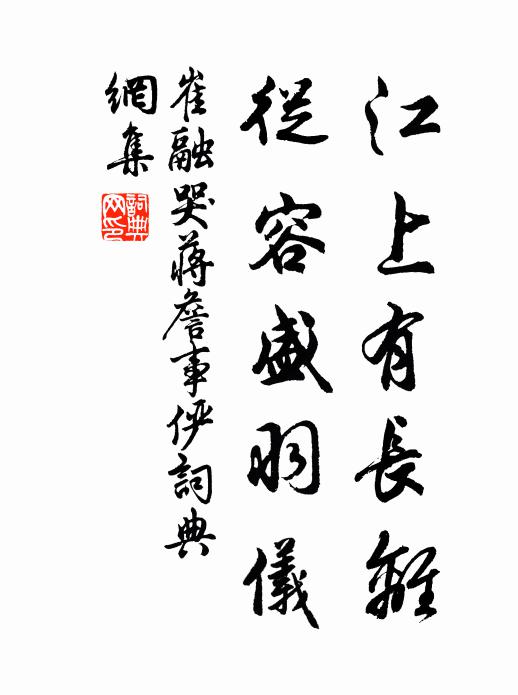 江上有長離
從容盛羽儀
崔融哭蔣詹事俨詞典
網集
詞典
网印